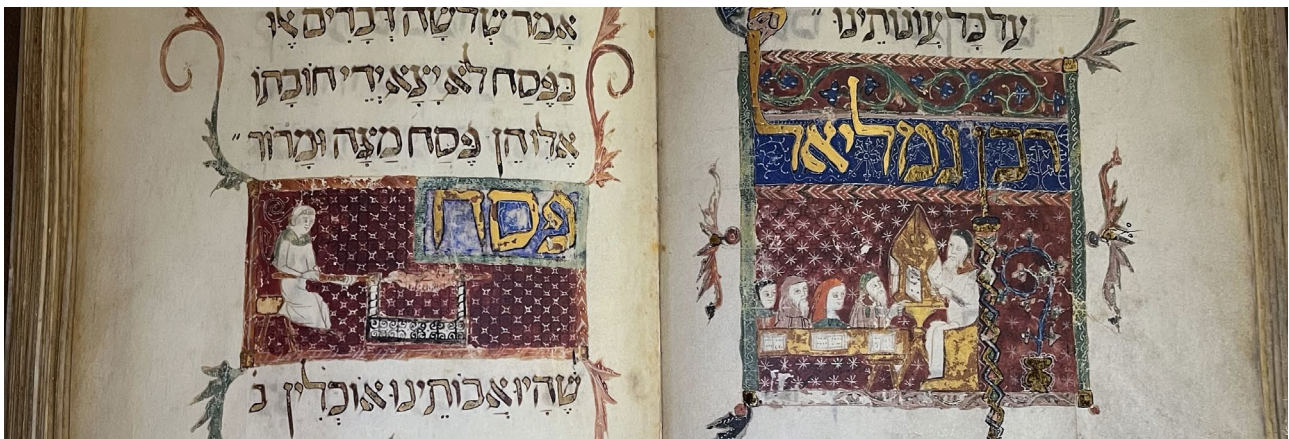 על כל עונותינו
רבן גמליאל
אמר שלשה דברים אלו
בפסח לא יצא ידי חובתו
אלו הן פסח מצה ומרור
פסח
שהיו אבותינו אוכלין